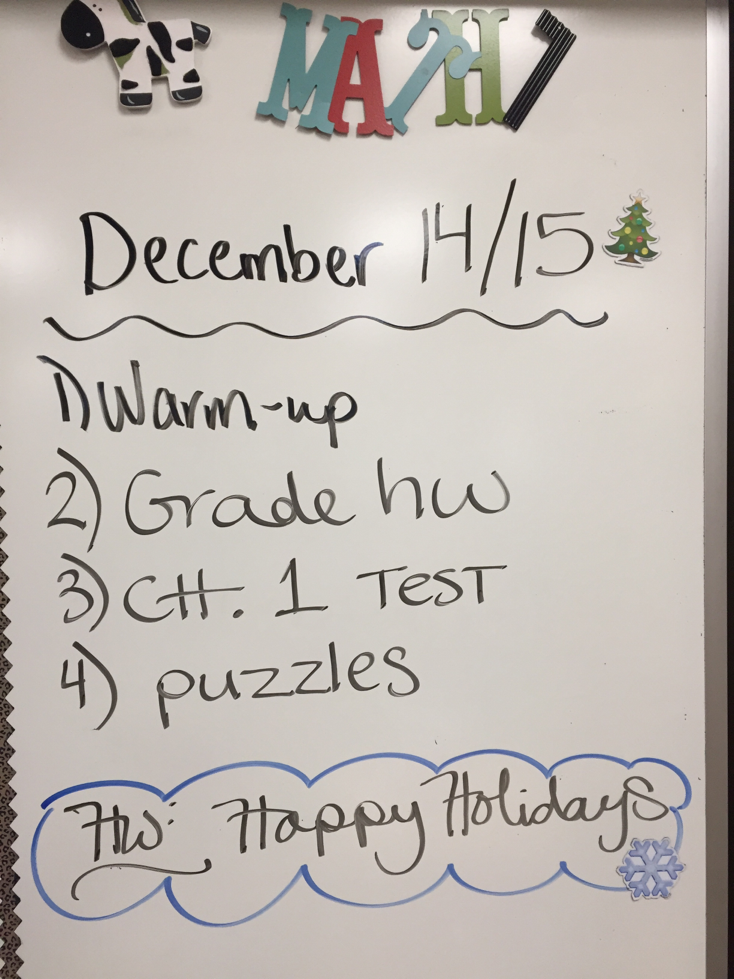 MATH 7
December 14/15
1) Warm-up
2) Grade hw
3) CH. 1 TEST
4) puzzles
HW: Happy Holidays